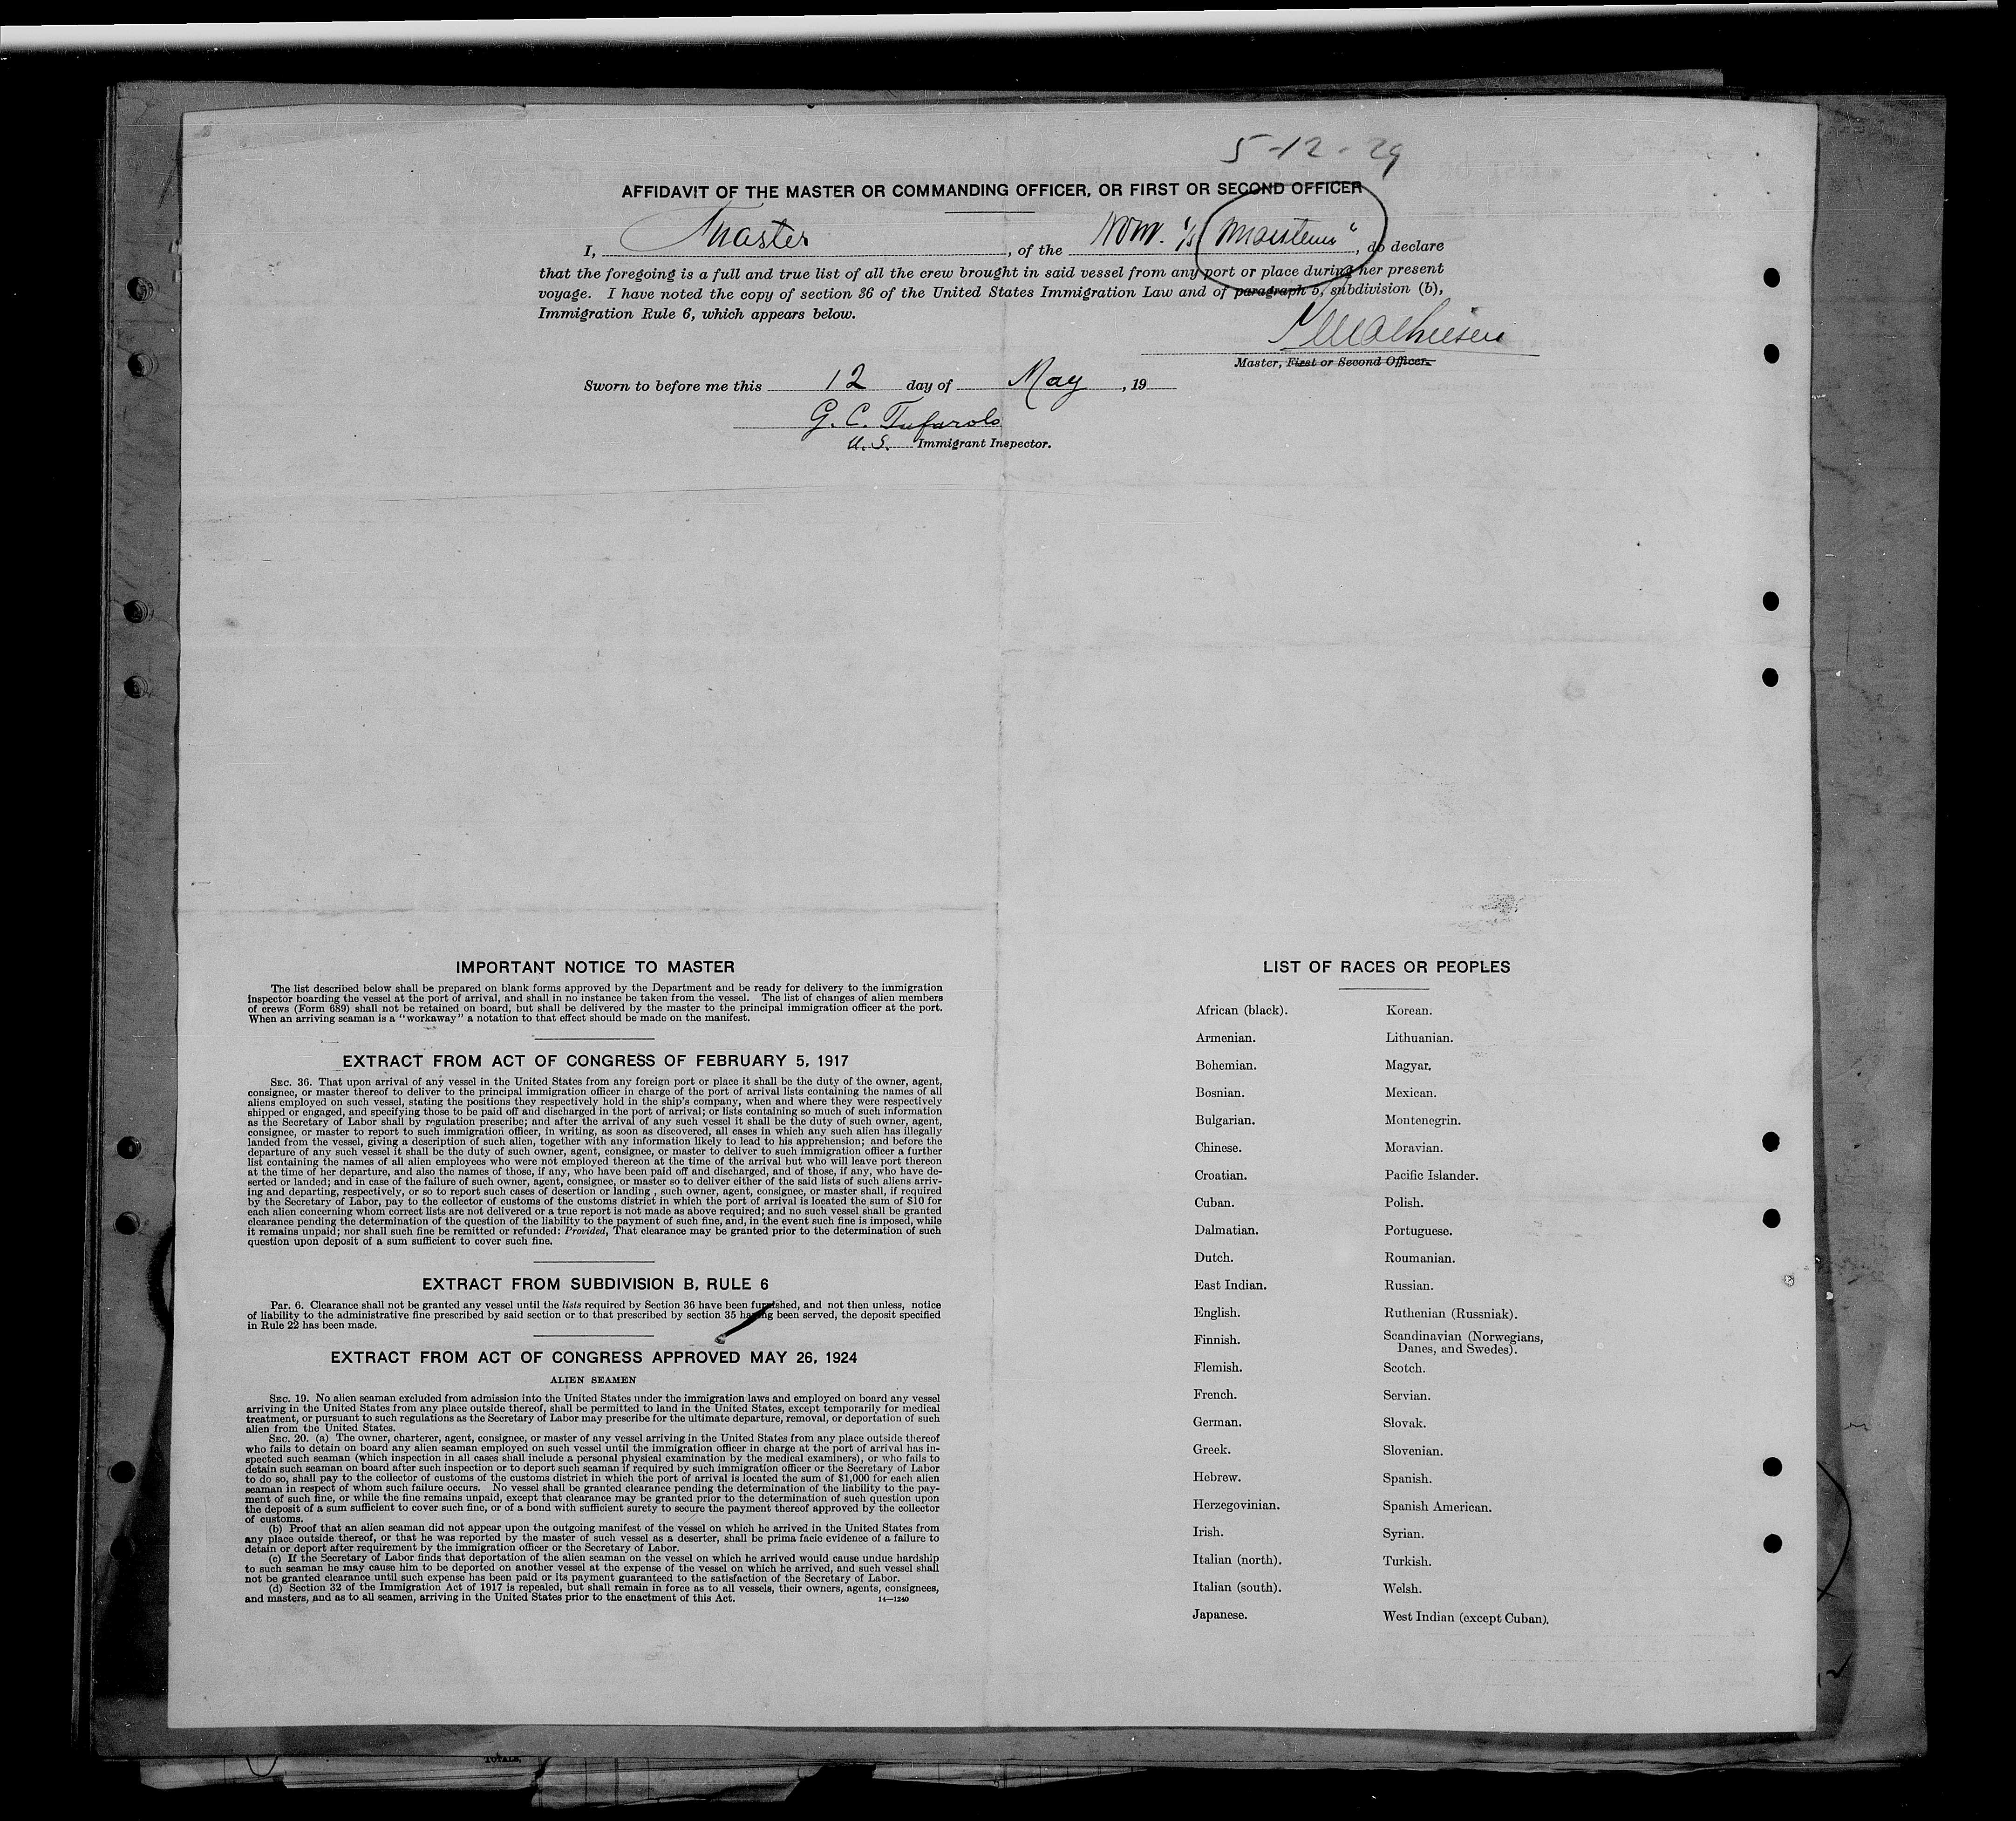 5-12-29
AFFIDAVIT OF THE MASTER OR COMMANDING OFFICER, OR FIRST OR SECOND OFFICER
I, Master, of the Norw. s/s, do declare
that the foregoing is a full and true list of all the crew brought in said vessel from any port or place during her present
voyage. I have noted the copy of section 36 of the United States Immigration Law and of paragraph 5, subdivision (b),
Immigration Rule 6, which appears below.
Master, First or Second Officer.
Sworn to before me this 12 day of May, 19
G. C. Tufarolo
U. S. Immigrant Inspector.
IMPORTANT NOTICE TO MASTER
The list described below shall be prepared on blank forms approved by the Department and be ready for delivery to the immigration
inspector boarding the vessel at the port of arrival, and shall in no instance be taken from the vessel. The list of changes of alien members
of crews (Form 689) shall not be retained on board, but shall be delivered by the master to the principal immigration officer at the port.
When an arriving seaman is a "workaway" a notation to that effect should be made on the manifest.
EXTRACT FROM ACT OF CONGRESS OF FEBRUARY 5, 1917
SEC. 36. That upon arrival of any vessel in the United States from any foreign port or place it shall be the duty of the owner, agent,
consignee, or master thereof to deliver to the principal immigration officer in charge of the port of arrival lists containing the names of all
aliens employed on such vessel, stating the positions they respectively hold in the ship's company, when and where they were respectively
shipped or engaged, and specifying those to be paid off and discharged in the port of arrival; or lists containing so much of such information
as the Secretary of Labor shall by regulation prescribe; and after the arrival of any such vessel it shall be the duty of such owner, agent,
consignee, or master to report to such immigration officer, in writing, as soon as discovered, all cases in which any such alien has illegally
landed from the vessel, giving a description of such alien, together with any information likely to lead to his apprehension; and before the
departure of any such vessel it shall be the duty of such owner, agent, consignee, or master to deliver to such immigration officer a further
list containing the names of all alien employees who were not employed thereon at the time of the arrival but who will leave port thereon
at the time of her departure, and also the names of those, if any, who have been paid off and discharged, and of those, if any, who have de-
serted or landed; and in case of the failure of such owner, agent, consignee, or master so to deliver either of the said lists of such aliens arriv-
ing and departing, respectively, or so to report such cases of desertion or landing , such owner, agent, consignee, or master shall, if required
by the Secretary of Labor, pay to the collector of customs of the customs district in which the port of arrival is located the sum of $10 for
each alien concerning whom correct lists are not delivered or a true report is not made as above required; and no such vessel shall be granted
clearance pending the determination of the question of the liability to the payment of such fine, and, in the event such fine is imposed, while
it remains unpaid; nor shall such fine be remitted or refunded: Provided, That clearance may be granted prior to the determination of such
question upon deposit of a sum sufficient to cover such fine.
EXTRACT FROM SUBDIVISION B, RULE 6
Par. 6. Clearance shall not be granted any vessel until the lists required by Section 36 have been furnished, and not then unless, notice
of liability to the administrative fine prescribed by said section or to that prescribed by section 35 having been served, the deposit specified
in Rule 22 has been made.
EXTRACT FROM ACT OF CONGRESS APPROVED MAY 26, 1924
ALIEN SEAMEN
SEC. 19. No alien seaman excluded from admission into the United States under the immigration laws and employed on board any vessel
arriving in the United States from any place outside thereof, shall be permitted to land in the United States, except temporarily for medical
treatment, or pursuant to such regulations as the Secretary of Labor may prescribe for the ultimate departure, removal, or deportation of such
alien from the United States.
SEC. 20. (a) The owner, charterer, agent, consignee, or master of any vessel arriving in the United States from any place outside thereof
who fails to detain on board any alien seaman employed on such vessel until the immigration officer in charge at the port of arrival has in-
spected such seaman (which inspection in all cases shall include a personal physical examination by the medical examiners), or who fails to
detain such seaman on board after such inspection or to deport such seaman if required by such immigration officer or the Secretary of Labor
to do so, shall pay to the collector of customs of the customs district in which the port of arrival is located the sum of $1,000 for each alien
seaman in respect of whom such failure occurs. No vessel shall be granted clearance pending the determination of the liability to the pay-
ment of such fine, or while the fine remains unpaid, except that clearance may be granted prior to the determination of such question upon
the deposit of a sum sufficient to cover such fine, or of a bond with sufficient surety to secure the payment thereof approved by the collector
of customs.
(b) Proof that an alien seaman did not appear upon the outgoing manifest of the vessel on which he arrived in the United States from
any place outside thereof, or that he was reported by the master of such vessel as a deserter, shall be prima facie evidence of a failure to
detain or deport after requirement by the immigration officer or the Secretary of Labor.
(c) If the Secretary of Labor finds that deportation of the alien seaman on the vessel on which he arrived would cause undue hardship
to such seaman he may cause him to be deported on another vessel at the expense of the vessel on which he arrived, and such vessel shall
not be granted clearance until such expense has been paid or its payment guaranteed to the satisfaction of the Secretary of Labor.
(d) Section 32 of the Immigration Act of 1917 is repealed, but shall remain in force as to all vessels, their owners, agents, consignees,
and masters, and as to all seamen, arriving in the United States prior to the enactment of this Act. 14—1240
LIST OF RACES OR PEOPLES
African (black). Korean.
Armenian. Lithuanian.
Bohemian. Magyar.
Bosnian. Mexican.
Bulgarian. Montenegrin.
Chinese. Moravian.
Croatian. Pacific Islander.
Cuban. Polish.
Dalmatian. Portuguese.
Dutch. Roumanian.
East Indian. Russian.
English. Ruthenian (Russniak).
Finnish. Scandinavian (Norwegians,
Danes, and Swedes).
Flemish. Scotch.
French. Servian.
German. Slovak.
Greek. Slovenian.
Hebrew. Spanish.
Herzegovinian. Spanish American.
Irish. Syrian.
Italian (north). Turkish.
Italian (south). Welsh.
Japanese. West Indian (except Cuban).
TOTALS,